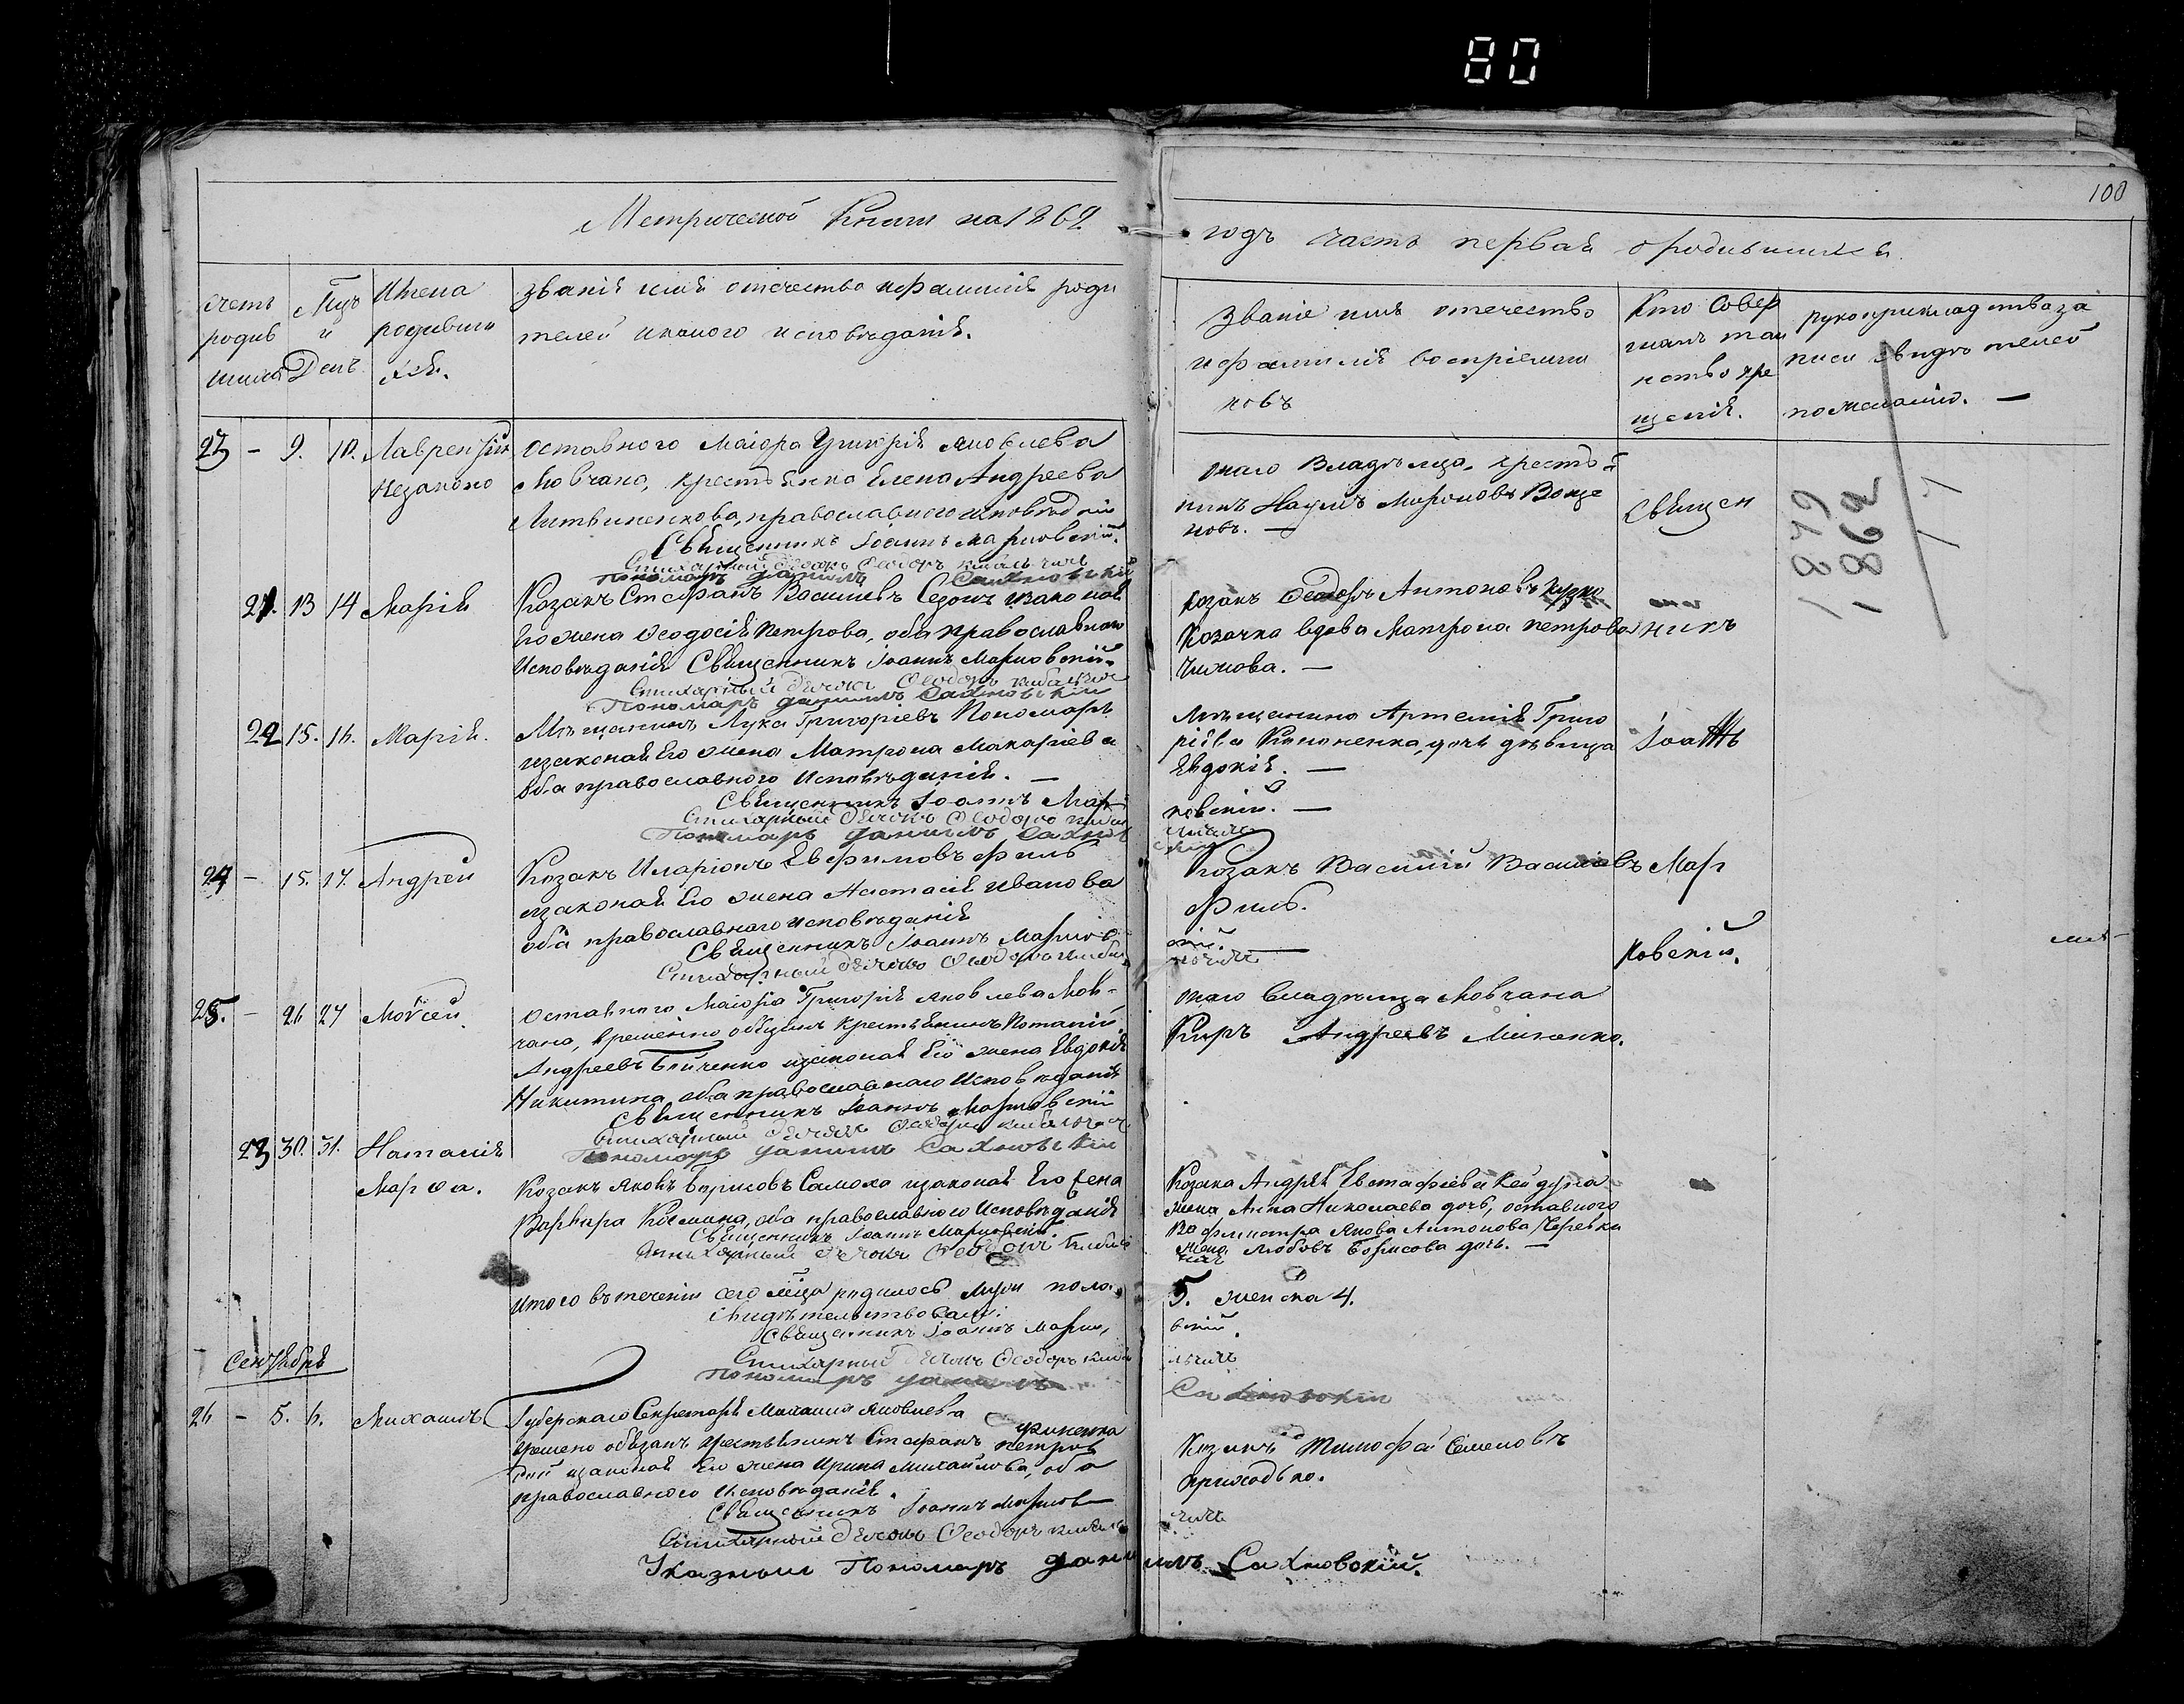 80
100
Метрической Книги на 1862
годъ часть первая о родившихся.
Счетъ родив шихся
Мцъ и День
Имена родивши хся.
Званія имя отечество и фамилія роди
телей и какого исповѣданія.
Званіе имя отечество
и фамилія воспріемни
ковъ
Кто совер
шалъ таи
нство кре
щенія.
рукоприкладства за
писи свидѣтелей
по желанію. —
23 - 9. 10. Лаврентій
Незаконо
оставного Маіора Григорія Яковлева
Мовчана, крестьянка Елена Андреева
Литвиненкова, православного исповѣданія
Священникъ Іоаннъ Марковскій.
Стихарный Дячокъ Ѳеодоръ Кибальчичъ
Пономаръ Данилъ Сахновскій
того Владѣльца, крестья
нинъ Наумъ Мироновъ
новъ. —
Священ
1879
1862
17
21. 13 14 Марія
Козакъ Стефанъ Васильевъ Седошъ изаконая
Его жена Ѳеодосія Петрова, оба православного
Исповѣданія Священникъ Іоаннъ Марковскій.
Стихарный Дячокъ Ѳеодоръ Кибальчичъ
Пономаръ Данилъ Сахновскій
Козакъ Ѳеодоръ Антоновъ
Козачка вдова Матрона Петрова
Чижова. —
никъ
22 15. 16. Марія.
Мѣщанинъ Лука Григоріевъ Пономаръ
изаконая Его жена Матрона Макаріева
оба православного Исповѣданія. —
Священникъ Іоаннъ Мар
Стихарный Дячокъ Ѳеодоръ Кибал
Пономаръ Данилъ Сахнов
Мѣщанина Артемія Григо
рієва Кононенка, дочь дѣвица
Евдокія. —
ковскій. —
Іоаннъ
24 - 15. 17. Андрей
Козакъ Иларіонъ Евфимовъ Филь
изаконая Его жена Анастасія Иванова
оба православного исповѣданія
Священникъ Іоаннъ Марков
Стихарный Дячокъ Ѳеодоръ Кибал
Козакъ Василій Васильевъ
Филь.
скій. —
Мар
ковскій.
25. - 26 27 Моѵсей
оставного Маіора Григорія Яковлева Мов-
чана, временно обязан крестьянинъ Потапій
Андреевъ Бойченко изаконая Его жена Евдокія
Никитина, оба православнаго Исповѣданія
Священникъ Іоаннъ Марковскій
Стихарный Дячокъ Ѳеодоръ Кибальчичъ
Пономаръ Данилъ Сахновскій
того владѣльца Мовчана
Киръ Андреевъ Миненко.
23 30. 31. Наталія
Марѳа.
Козакъ Яковъ Борисовъ Самоха изаконая Его жена
Варвара Космина, оба православного Исповѣданія
Священникъ Іоаннъ Марковскій.
Стихарный Дячокъ Ѳеодоръ Кибал
Козака Андрея Евстафіева
жена Анна Николаева дочь, оставного
Яковa Антонова Черевка
жена Любовь Борисова дочь. —
Итого въ теченіи сего мѣсца родилось Муж пола
5. женска 4.
Свидѣтельствовали:
Священникъ Іоаннъ Марко
вскій.
Стихарный Дячокъ Ѳеодоръ Киба
льчичъ
Пономаръ Данилъ
Сахновскій
Сентябрь
26 - 5. 6. Михаилъ
Губерскаго Секретаря Михаила Яковлева
времено обязан крестьянинъ Стефанъ Петров
изаконая Его жена Ирина Михайлова, оба
православного Исповѣданія.
Священникъ Іоаннъ Марков
Стихарный Дячокъ Ѳеодоръ Кибал
чичъ
Указный Пономаръ Данилъ Сахновскій.
Козакъ Тимофей Семеновъ
Приходько.